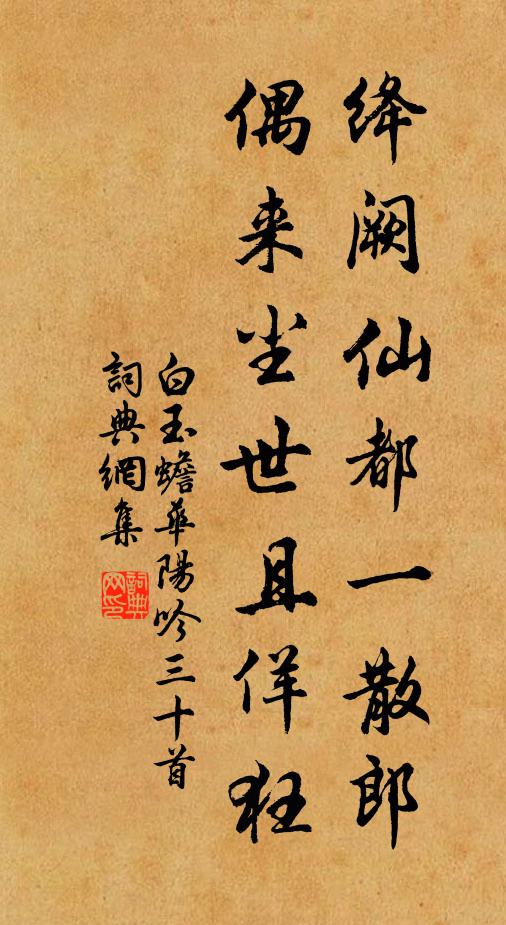 绛阙仙都一散郎
偶来尘世且佯狂
白玉蟾華陽吟三十首
詞典網集
詞典网印